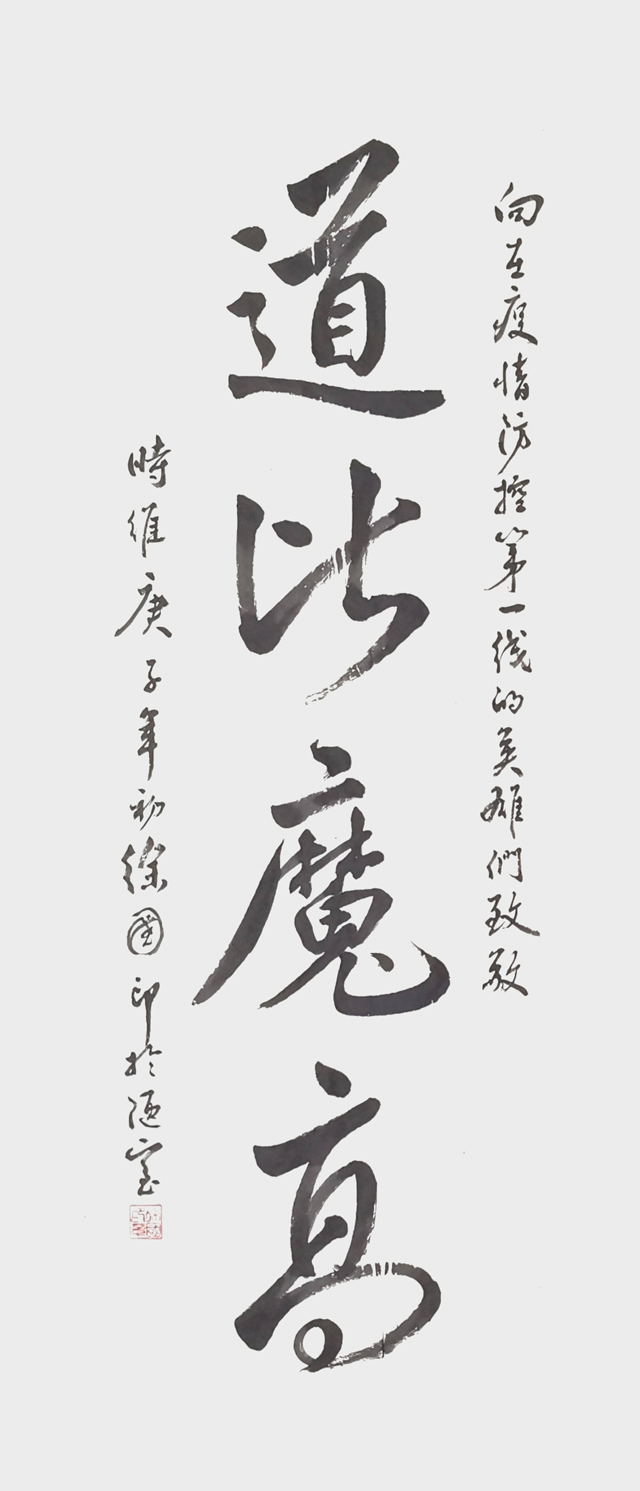 向在疫情防控第一线的英雄們致敬
道比魔高
時維庚子年初徐國印於陋室